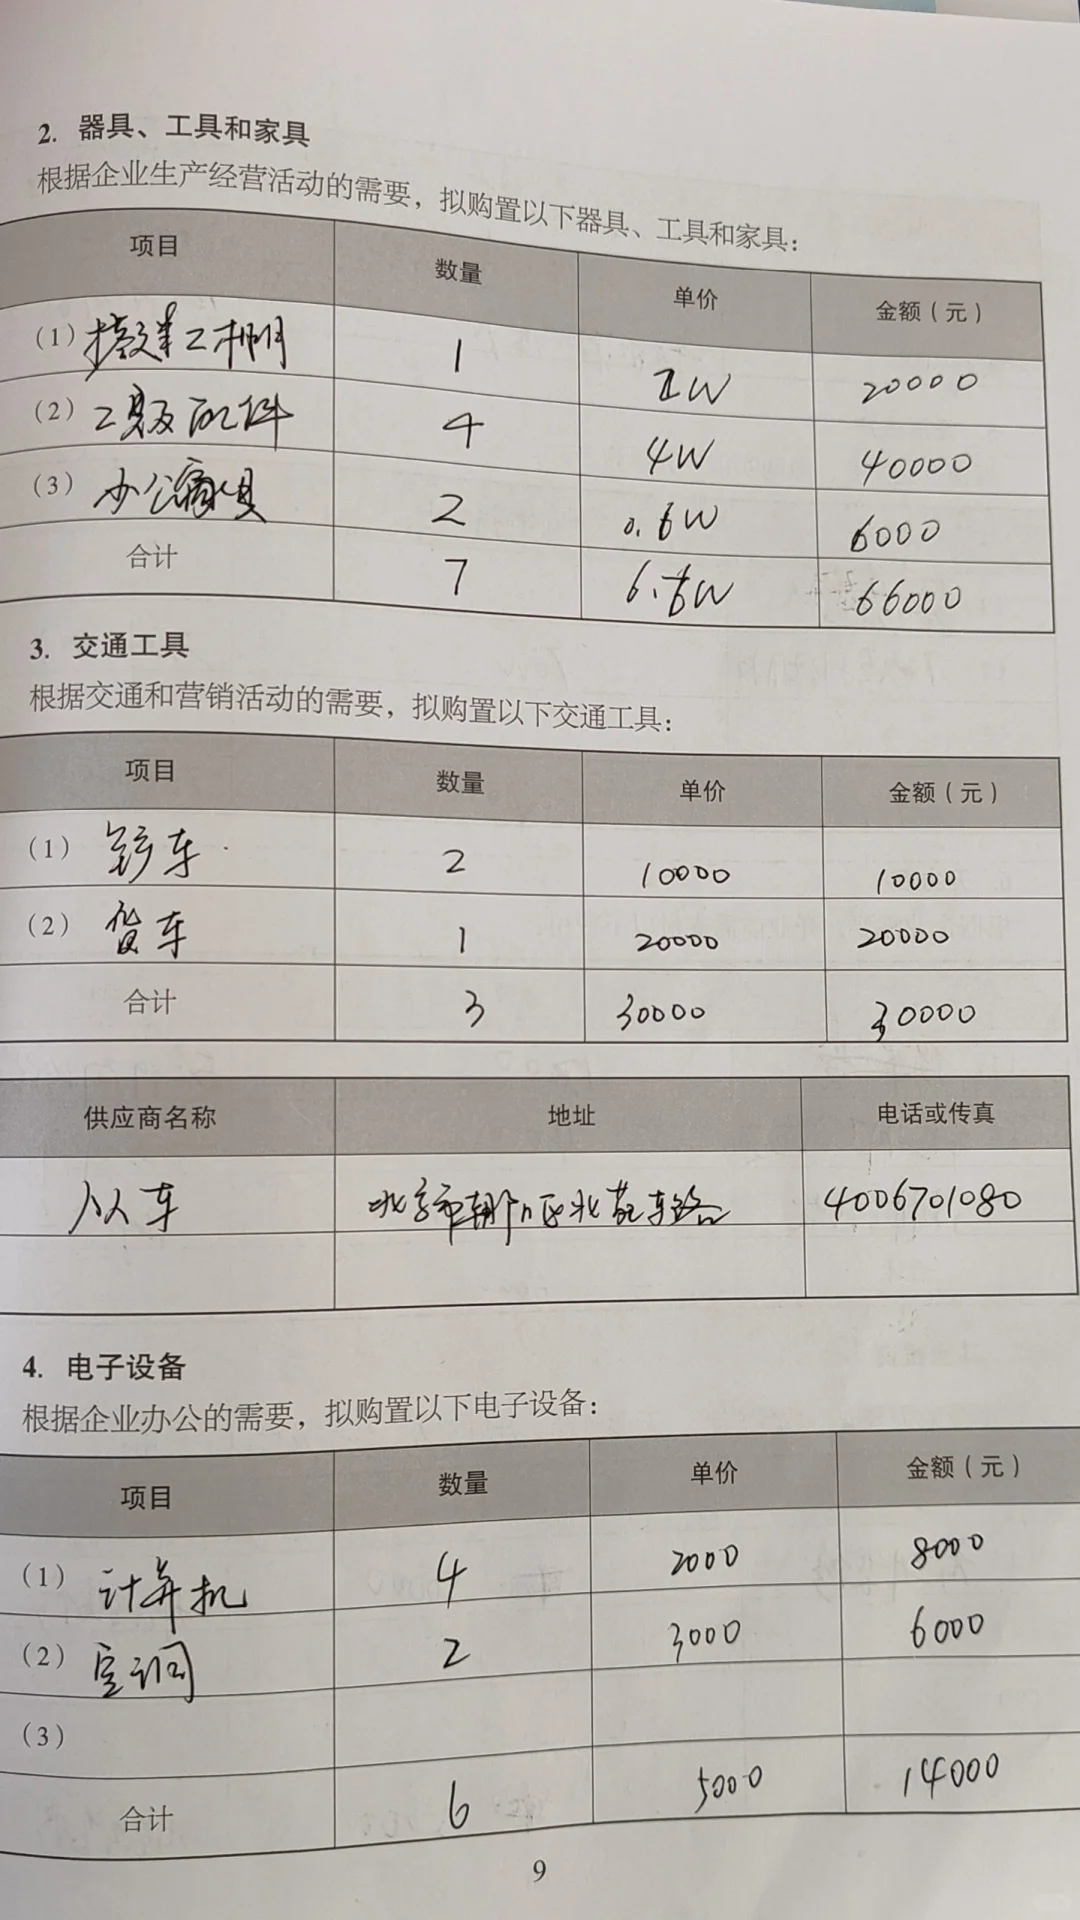 2. 器具、工具和家具
根据企业生产经营活动的需要，拟购置以下器具、工具和家具：
项目 数量 单价 金额（元）
（1） 1 2W 20000
（2） 配件 4 4W 40000
（3）办公家具 2 0.6W 6000
合计 7 6.6W 66000
3. 交通工具
根据交通和营销活动的需要，拟购置以下交通工具：
项目 数量 单价 金额（元）
（1）铲车 2 10000 10000
（2）货车 1 20000 20000
合计 3 30000 30000
供应商名称 地址 电话或传真
人人车 北京市朝阳区北苑东路 4006701080
4. 电子设备
根据企业办公的需要，拟购置以下电子设备：
项目 数量 单价 金额（元）
（1）计算机 4 2000 8000
（2）空调 2 3000 6000
（3）
合计 6 5000 14000
9